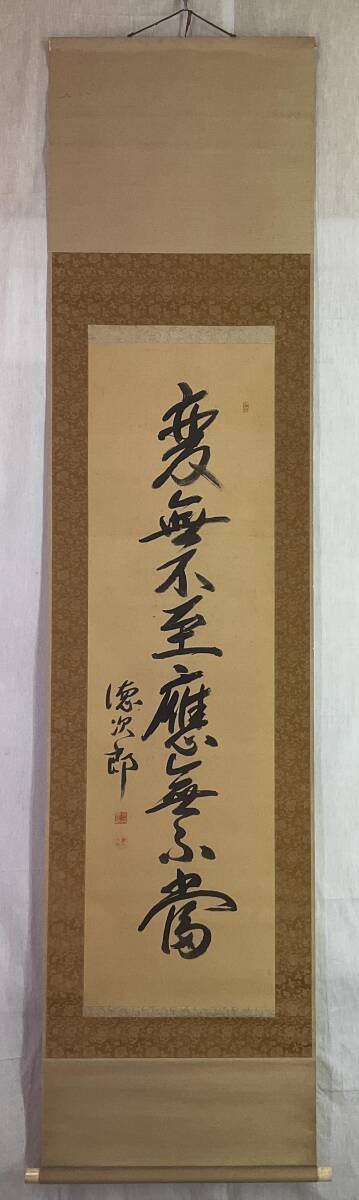 變無不至應無不當
德次郎